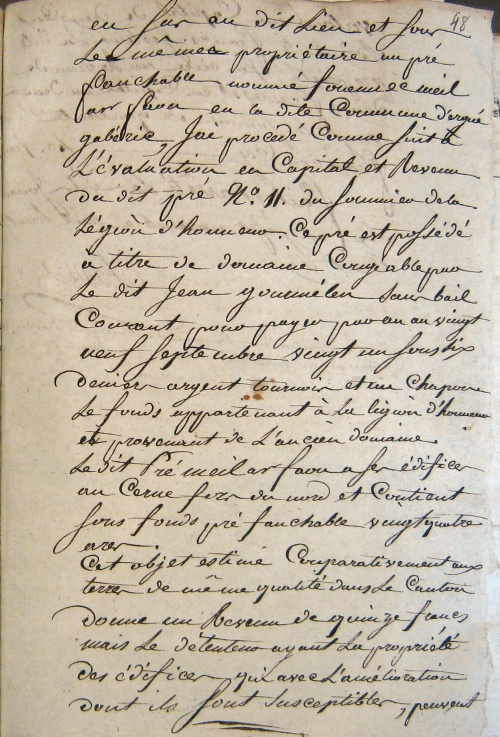 48
en sur au dit Lieu et sous
Le même propriétaire un pré
fauchable nommé foennec meil
ar faou en la dite Commune d'ergué
gaberic, J'ai procédé Comme suit à
L'évaluation en Capital et Revenu
du dit pré N.o 11. du sommier de la
Légion d'honneur. Ce pré est possédé
à titre de domaine Congeable par
Le dit Jean gourmélen sans bail
Courant, pour payer par an au vingt
neuf septembre vingt un sous six
deniers argent tournois et un Chapon
Le fonds appartenant à La légion d'honneur
et provenant de L'ancien domaine.
Le dit Pré meil ar faou a ses édifices
au Cerne fors du nord et Contient
sous fonds pré fauchable vingt quatre
ares.
Cet objet estimé Comparativement aux
terres de même qualité dans Le Canton
donne un Revenu de quinze francs
mais Le détenteur ayant La propriété
des édifices qui avec L'amélioration
dont ils sont susceptibles, peuvent